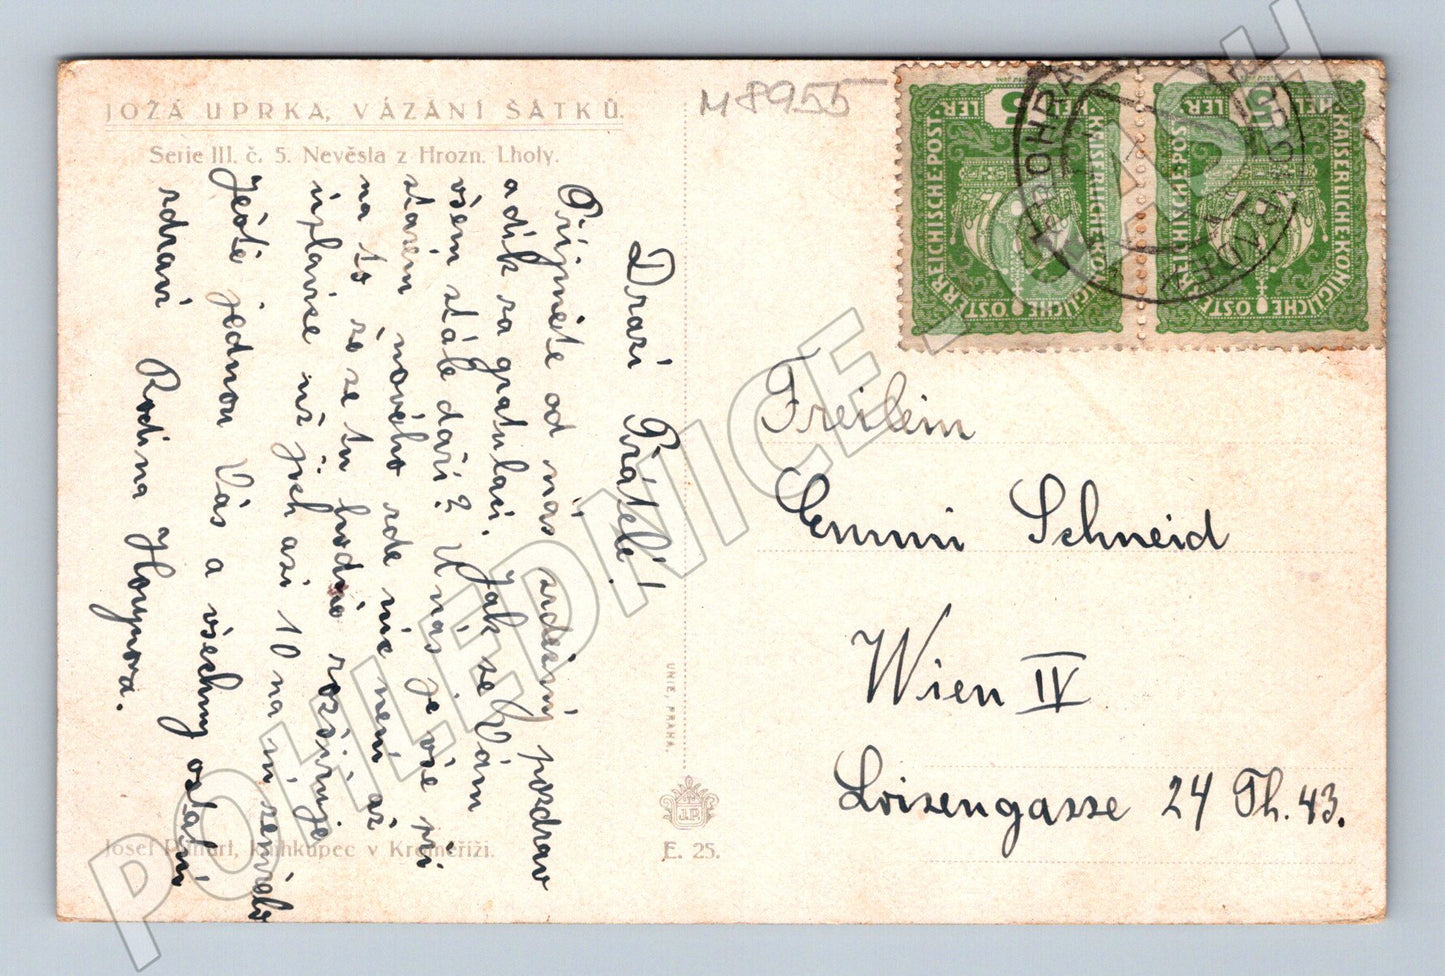 JOŽA UPRKA, VÁZÁNÍ ŠÁTKŮ.
Serie III. č. 5. Nevěsta z Hrozn. Lhoty.
M 8955
Drazí Přátelé!
Přijměte od nás srdečný pozdrav
a dík za gratulaci. Jak se Vám
všem stále daří? U nás je vše při
starém nového zde nic není až
na to že se tu hodně rozšiřuje
úplavice už jich asi 10 na ni zemřelo
Ještě jednou Vás a všechny ostatní
zdraví Rodina
UNIE, PRAHA.
J.P.
Josef knihkupec v Kroměříži.
E. 25.
KAISERLICHE KÖNIGLICHE ÖSTERREICHISCHE POST.
5 HELLER
KAISERLICHE KÖNIGLICHE ÖSTERREICHISCHE POST.
5 HELLER
Freilein
Emmi Schneid
Wien IV
Loisengasse 24 Th. 43.
POHLEDNICE